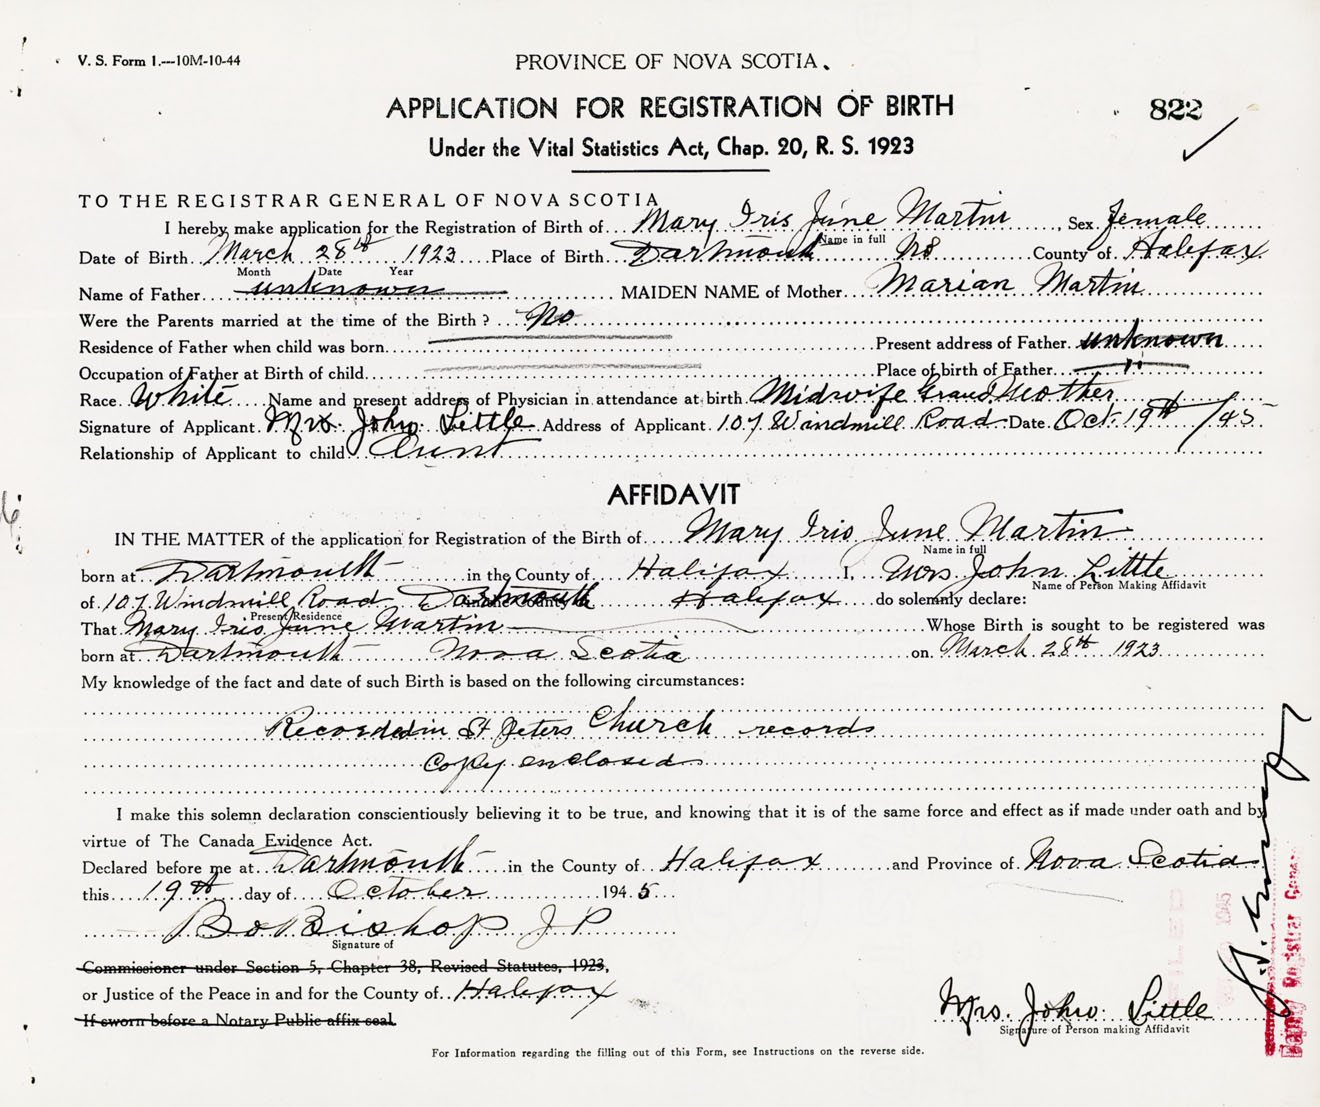 V. S. Form 1.—10M-10-44
PROVINCE OF NOVA SCOTIA.
APPLICATION FOR REGISTRATION OF BIRTH
822
Under the Vital Statistics Act, Chap. 20, R. S. 1923
TO THE REGISTRAR GENERAL OF NOVA SCOTIA
I hereby make application for the Registration of Birth of Mary Iris June Martin, Sex female
Name in full
Date of Birth March 28th 1923 Place of Birth Dartmouth NS County of Halifax
Month Date Year
Name of Father unknown MAIDEN NAME of Mother Marian Martin
Were the Parents married at the time of the Birth? No
Residence of Father when child was born Present address of Father unknown
Occupation of Father at Birth of child Place of birth of Father "
Race White Name and present address of Physician in attendance at birth Midwife GrandMother
Signature of Applicant Mrs. John Little Address of Applicant 107 Windmill Road Date Oct. 19th /45
Relationship of Applicant to child Aunt
AFFIDAVIT
IN THE MATTER of the application for Registration of the Birth of Mary Iris June Martin
Name in full
born at Dartmouth in the County of Halifax I, Mrs John Little
Name of Person Making Affidavit
of 107 Windmill Road Dartmouth in the County of Halifax do solemnly declare:
Present Residence
That Mary Iris June Martin Whose Birth is sought to be registered was
born at Dartmouth Nova Scotia on March 28th 1923
My knowledge of the fact and date of such Birth is based on the following circumstances:
Recorded in St Peters Church records
copy enclosed
I make this solemn declaration conscientiously believing it to be true, and knowing that it is of the same force and effect as if made under oath and by
virtue of The Canada Evidence Act.
Declared before me at Dartmouth in the County of Halifax and Province of Nova Scotia
this 19th day of October 1945
Bishop J P
Signature of
Commissioner under Section 5, Chapter 38, Revised Statutes, 1923,
or Justice of the Peace in and for the County of Halifax
If sworn before a Notary Public affix seal
Mrs. John Little
Signature of Person making Affidavit
Deputy Registrar General
For Information regarding the filling out of this Form, see Instructions on the reverse side.